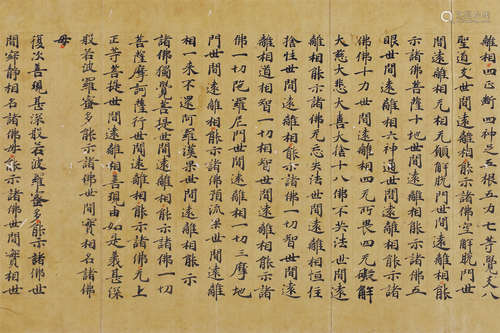 離相四正斷四神之五根五力七等覺支八
聖道支世間遠離相能示諸佛空解脫門世
間遠離相无相无願解脫門世間遠離相能
示諸佛菩薩十地世間遠離相能示諸佛五
眼世間遠離相六神通世間遠離相能示諸
佛佛十力世間遠離相四无所畏四无礙解
大慈大悲大喜大捨十八佛不共法世間遠
離相能示諸佛无忘失法世間遠離相恒住
捨性世間遠離相能示諸佛一切智世間遠
離相道相智一切相智世間遠離相能示諸
佛一切陀羅尼門世間遠離相一切三摩地
門世間遠離相能示諸佛預流果世間遠離
相一來不還阿羅漢果世間遠離相能示
諸佛獨覺菩提世間遠離相能示諸佛一切
菩薩摩訶薩行世間遠離相能示諸佛无上
正等菩提世間遠離相善現由如是義甚深
般若波羅蜜多能示諸佛世間實相名諸佛
母
復次善現甚深般若波羅蜜多能示諸佛世
間寂靜相名諸佛母能示諸佛世間實相世